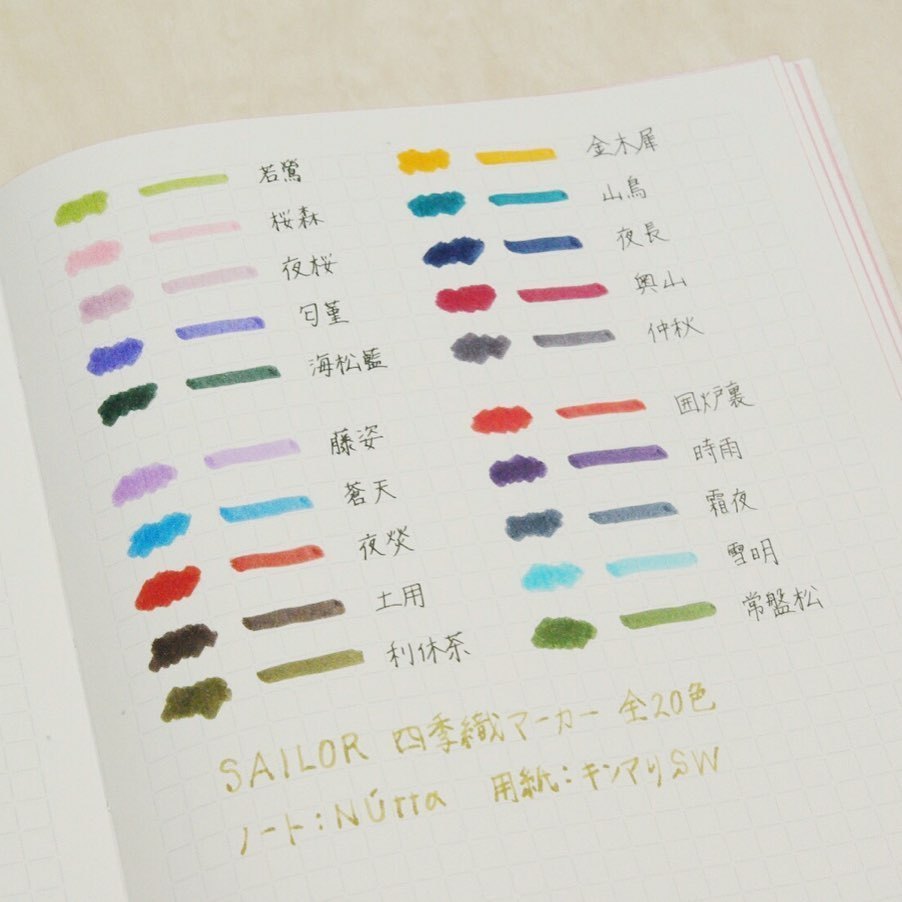 若鶯
桜森
夜桜
匂菫
海松藍
藤姿
蒼天
夜焚
土用
利休茶
金木犀
山鳥
夜長
奥山
仲秋
囲炉裏
時雨
霜夜
雪明
常盤松
SAILOR 四季織マーカー 全20色
ノート:NÚrra 用紙:キンマリSW